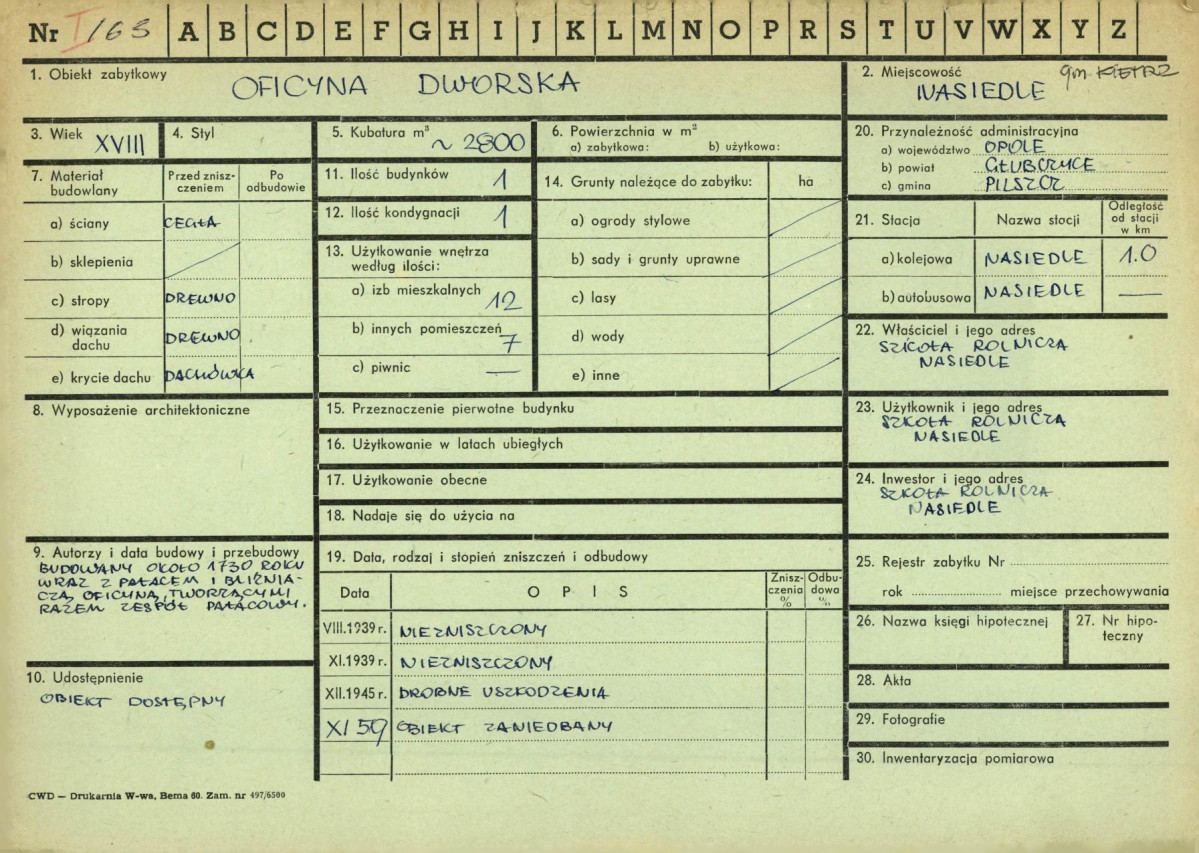 Nr I/163 A B C D E F G H I J K L M N O P R S T U V W X Y Z
1. Obiekt zabytkowy
OFICYNA DWORSKA
2. Miejscowość gm KIETRZ
NASIEDLE
3. Wiek XVIII
4. Styl
5. Kubatura m³
~ 2800
6. Powierzchnia w m²
a) zabytkowa: b) użytkowa:
20. Przynależność administracyjna
a) województwo OPOLE
b) powiat GŁUBCZYCE
c) gmina PILSZCZ
7. Materiał budowlany
Przed znisz-
czeniem
Po
odbudowie
a) ściany CEGŁA
b) sklepienia
c) stropy DREWNO
d) wiązania
dachu DREWNO
e) krycie dachu DACHÓWKA
11. Ilość budynków 1
12. Ilość kondygnacji 1
13. Użytkowanie wnętrza
według ilości:
a) izb mieszkalnych 12
b) innych pomieszczeń 7
c) piwnic —
14. Grunty należące do zabytku: ha
a) ogrody stylowe
b) sady i grunty uprawne
c) lasy
d) wody
e) inne
21. Stacja Nazwa stocji
Odległość
od stacji
w km
a) kolejowa NASIEDLE 1.0
b) autobusowa NASIEDLE —
22. Właściciel i jego adres
SZKOŁA ROLNICZA
NASIEDLE
8. Wyposażenie architektoniczne
15. Przeznaczenie pierwotne budynku
16. Użytkowanie w latach ubiegłych
17. Użytkowanie obecne
18. Nadaje się do użycia na
23. Użytkownik i jego adres
SZKOŁA ROLNICZA
NASIEDLE
24. Inwestor i jego adres
SZKOŁA ROLNICZA
NASIEDLE
9. Autorzy i data budowy i przebudowy
BUDOWANY OKOŁO 1730 ROKU
WRAZ Z PAŁACEM I BLIŹNIA-
CZĄ OFICYNĄ, TWORZĄCYMI
RAZEM ZESPÓŁ PAŁACOWY.
19. Data, rodzaj i stopień zniszczeń i odbudowy
Data OPIS
Znisz-
czenia
%
Odbu-
dowa
%
VIII.1939 r. NIEZNISZCZONY
XI.1939 r. NIEZNISZCZONY
XII.1945 r. DROBNE USZKODZENIA
XI 59 OBIEKT ZANIEDBANY
25. Rejestr zabytku Nr
rok miejsce przechowywania
26. Nazwa księgi hipotecznej
27. Nr hipo-
teczny
28. Akta
29. Fotografie
30. Inwentaryzacja pomiarowa
10. Udostępnienie
OBIEKT DOSTĘPNY
CWD — Drukarnia W-wa, Bema 60. Zam. nr 497/6500